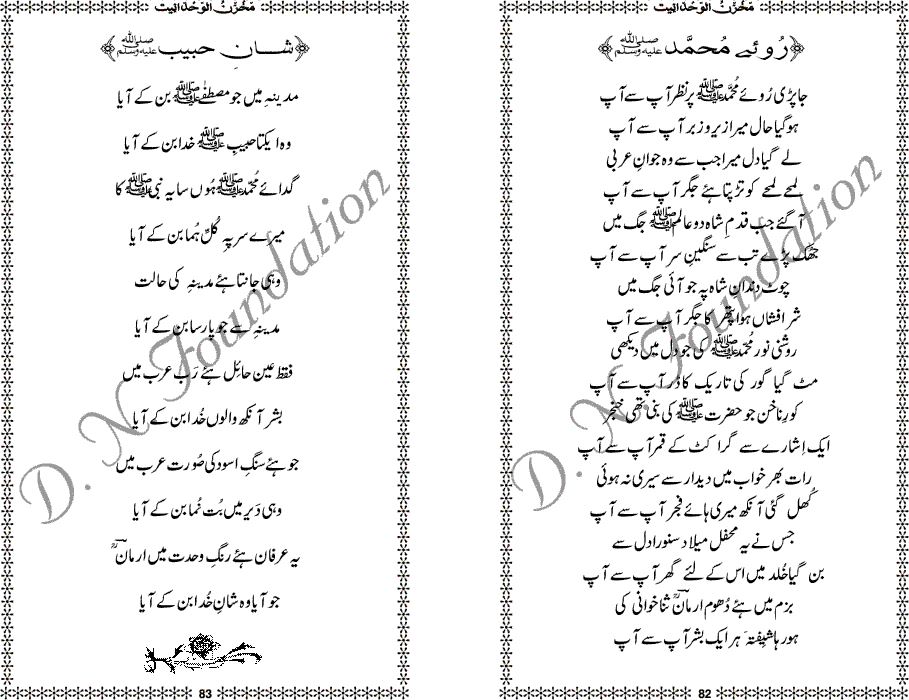 مَخْزنُ الوَحْدَانیت
﴿رُوئے مُحمَّد ﷺ﴾
جاپڑی رُوئے مُحَمَّد ﷺ پر نظر آپ سے آپ
ہوگیا حال میرا زیر و زبر آپ سے آپ
لے گیا دل میرا جب سے وہ جوانِ عربی
لمحے لمحے کو تڑپتا ہئے جگر آپ سے آپ
آگئے جب قدمِ شاہِ دو عالم ﷺ جگ میں
جھُک پڑے تب سے سنگین سر آپ سے آپ
چوٹ دندانِ شاہ پہ جو آئی جگ میں
شر افشاں ہوا پتھر کا جگر آپ سے آپ
روشنی نور مُحَمَّد ﷺ کی جو دل میں دیکھی
مٹ گیا گور کی تاریک کا ڈر آپ سے آپ
کورِ ناخن جو حضرت ﷺ کی بنی تھی خنجر
ایک اِشارے سے گرا کٹ کے قمر آپ سے آپ
رات بھر خواب میں دیدار سے سیری نہ ہوئی
کُھل گئی آنکھ میری ہائے فجر آپ سے آپ
جس نے یہ محفل میلاد سنورا دل سے
بن گیا خُلد میں اس کے لئے گھر آپ سے آپ
بزم میں ہئے دُھوم ارمانؔ ثنا خوانی کی
ہو رہا شیفتہ ہر ایک بشر آپ سے آپ
82
مَخْزنُ الوَحْدَانیت
﴿شانِ حبیب ﷺ﴾
مدینہ میں جو مصطفےٰ ﷺ بن کے آیا
وہ ایکتا حبیبِ ﷺ خدا بن کے آیا
گدائے مُحَمَّد ﷺ ہُوں سایہ نبی ﷺ کا
میرے سر پہ کُلِّ ہُما بن کے آیا
وہی جانتا ہئے مدینہ کی حالت
مدینہ سے جو پارسا بن کے آیا
فقط عین حائل ہئے رَب عرب میں
بشر آنکھ والوں خُدا بن کے آیا
جو ہئے سنگِ اسود کی صُورت عرب میں
وہی دَیر میں بُت نُما بن کے آیا
یہ عرفان ہئے رنگِ وحدت میں ارمانؔ
جو آیا وہ شانِ خُدا بن کے آیا
83
D. N. Foundation
D. N. Foundation